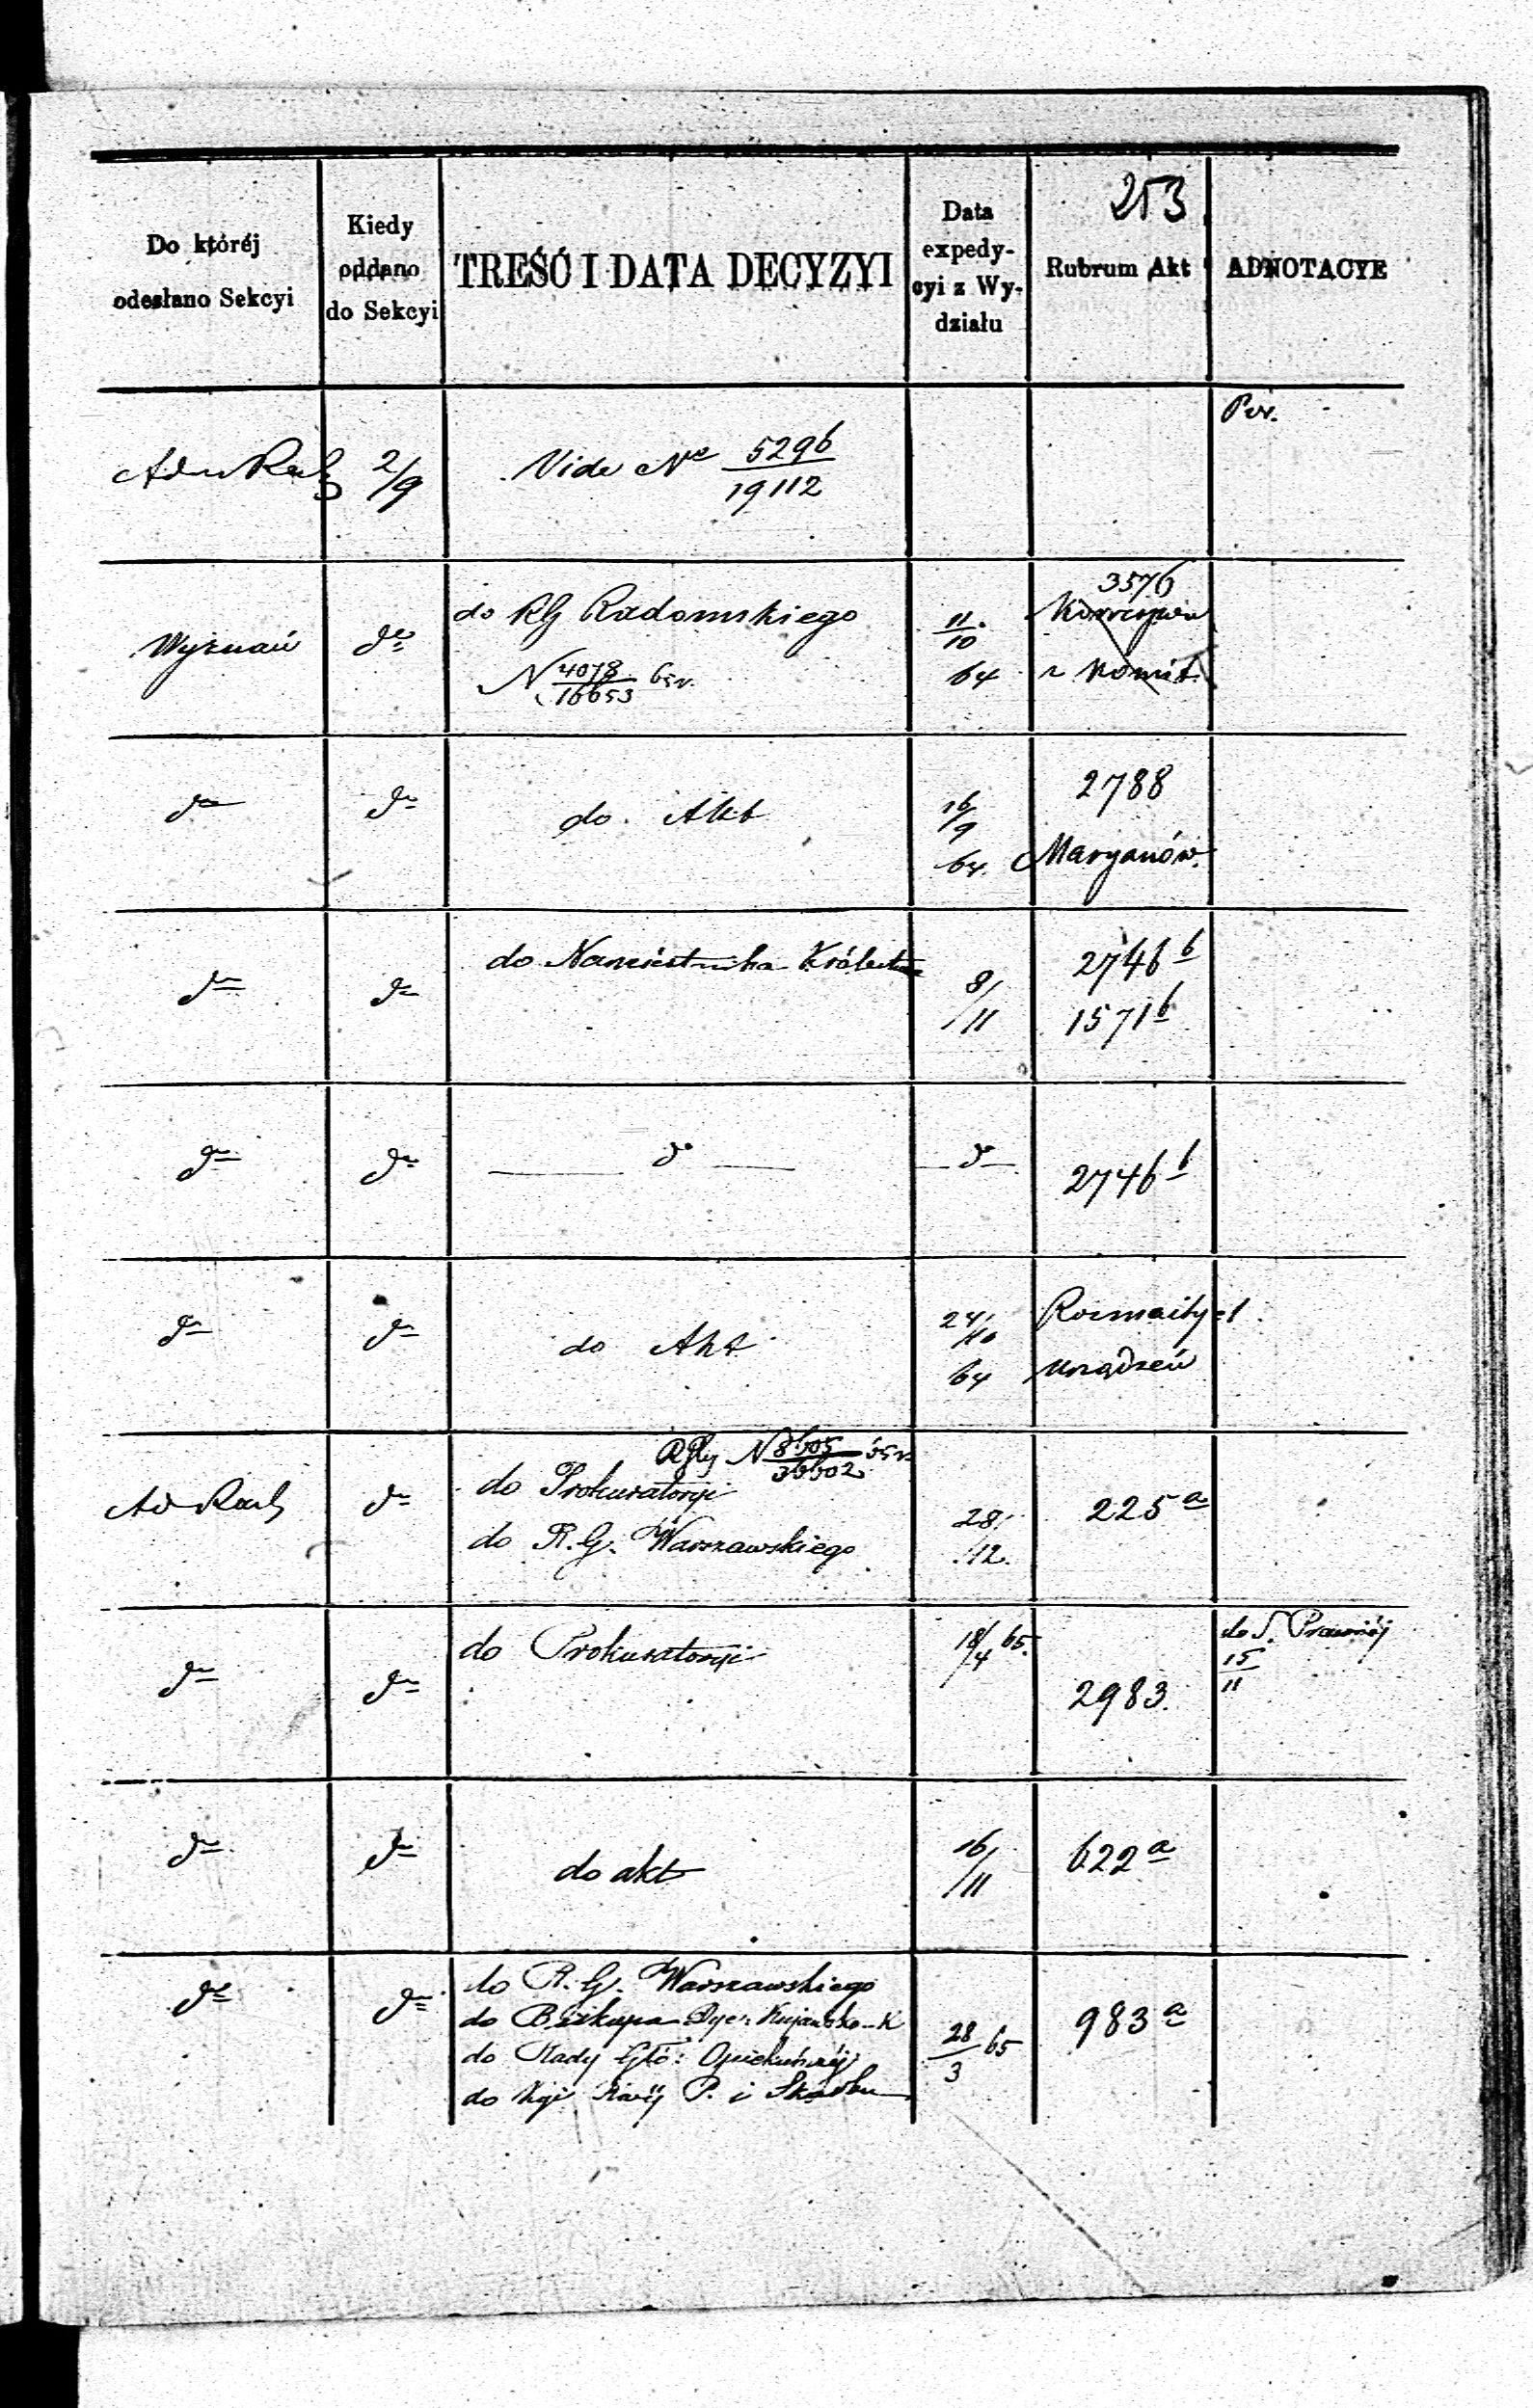 253
Do któréj
odesłano Sekcyi
Kiedy
oddano
do Sekcyi
TREŚĆ I DATA DECYZYI
Data
expedy-
cyi z Wy-
działu
Rubrum Akt
ADNOTACYE
2/9
Vide Nº 5296/19112
Wyznań
do
do RG Radomskiego
N 4078/16653
11/10
64
3576
z
do
do
do Akt
16/9
64.
2788
Maryanów.
do
do
do Namiestnika Królestwa
8/11
2746 b
1571 b
do
do
do
do
2746 b
do
do
do Akt
24/10
64
Rozmaitych
urządzeń
do
N 8605/36602
do Prokuratoryi
do R. G. Warszawskiego
28/12.
225 a
do
do
do Prokuratoryi
18/4 65.
2983.
do S. Prawnéj
15/11
do
do
do akt
16/11
622 a
do
do
do R. G. Warszawskiego
do Biskupa Dyec. Kujawsko-K
do Rady Głó: Opiekuńczéj
do P. i Skarbu
28/3 65
983 a